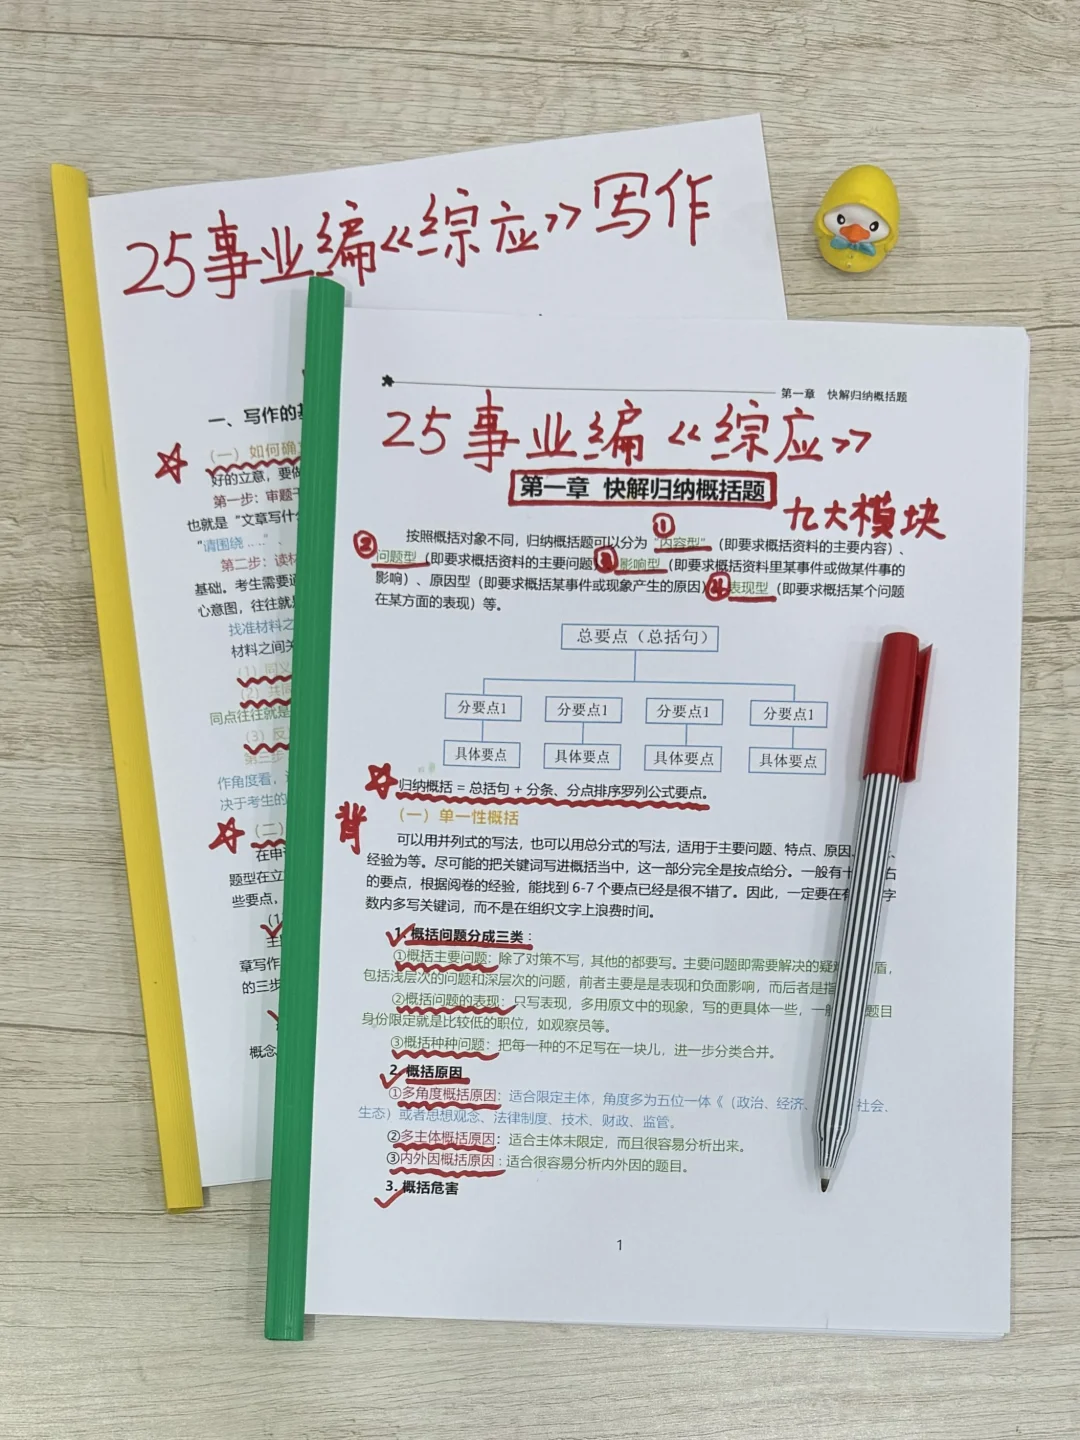 25事业编《综应》写作
一、写作的基
（一）如何确
好的立意，要做
第一步：审题
也就是“文章写什
“请围绕……”、
第二步：读材
基础。考生需要通
心意图，往往就
找准材料之
材料之间关
（1）同义
（2）共同
同点往往就是
（3）反
第三步
作角度看，
决于考生的
（二）
在申
题型在立
些要点，
章写作
的三步
概念
第一章 快解归纳概括题
25事业编《综应》
第一章 快解归纳概括题
九大模块
按照概括对象不同，归纳概括题可以分为①“内容型”（即要求概括资料的主要内容）、
②问题型（即要求概括资料的主要问题③影响型（即要求概括资料里某事件或做某件事的
影响）、原因型（即要求概括某事件或现象产生的原因）④表现型（即要求概括某个问题
在某方面的表现）等。
总要点（总括句）
分要点1 分要点1 分要点1 分要点1
具体要点 具体要点 具体要点 具体要点
归纳概括 = 总括句 + 分条、分点排序罗列公式要点。
背
（一）单一性概括
可以用并列式的写法，也可以用总分式的写法，适用于主要问题、特点、原因、
经验为等。尽可能的把关键词写进概括当中，这一部分完全是按点给分。一般有十 右
的要点，根据阅卷的经验，能找到 6-7 个要点已经是很不错了。因此，一定要在有 字
数内多写关键词，而不是在组织文字上浪费时间。
1. 概括问题分成三类：
①概括主要问题：除了对策不写，其他的都要写。主要问题即需要解决的疑 盾，
包括浅层次的问题和深层次的问题，前者主要是是表现和负面影响，而后者是指
②概括问题的表现：只写表现，多用原文中的现象，写的更具体一些，一 题目
身份限定就是比较低的职位，如观察员等。
③概括种种问题：把每一种的不足写在一块儿，进一步分类合并。
2. 概括原因
①多角度概括原因：适合限定主体，角度多为五位一体《（政治、经济、 社会、
生态）或者思想观念、法律制度、技术、财政、监管。
②多主体概括原因：适合主体未限定，而且很容易分析出来。
③内外因概括原因：适合很容易分析内外因的题目。
3. 概括危害
1